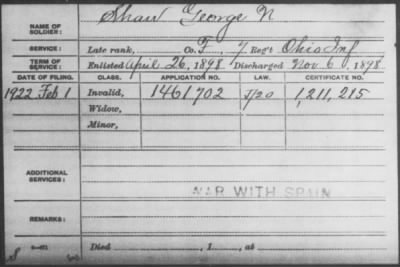 NAME OF SOLDIER: Shaw George N
SERVICE: Late rank, Co. F, 7 Reg't Ohio Inf
TERM OF SERVICE: Enlisted April 26, 1898, Discharged Nov 6, 1898
DATE OF FILING. CLASS. APPLICATION NO. LAW. CERTIFICATE NO.
1922 Feb 1 Invalid, 1461702 J/20 1,211,215
Widow,
Minor,
ADDITIONAL SERVICES:
WAR WITH SPAIN
REMARKS:
Died , 1 , at